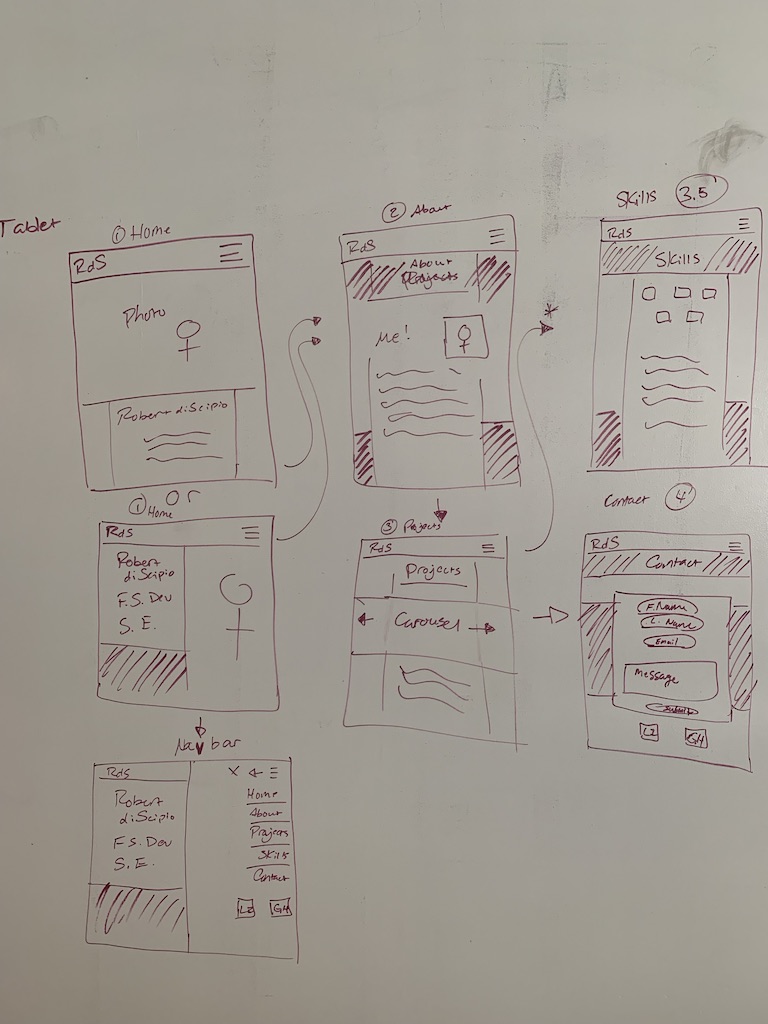 Tablet
① Home
RdS
Photo
Robert diScipio
or
① Home
RdS
Robert
diScipio
F.S. Dev
S. E.
Navbar
RdS
X ← ☰
Robert
diScipio
F.S. Dev
S. E.
Home
About
Projects
Skills
Contact
GH
② About
RdS
About
Projects
Me!
③ Projects
RdS
Projects
← Carousel →
*
Skills 3.5
RdS
Skills
Contact 4
RdS
Contact
F. Name
L. Name
Email
Message
Submit
GH